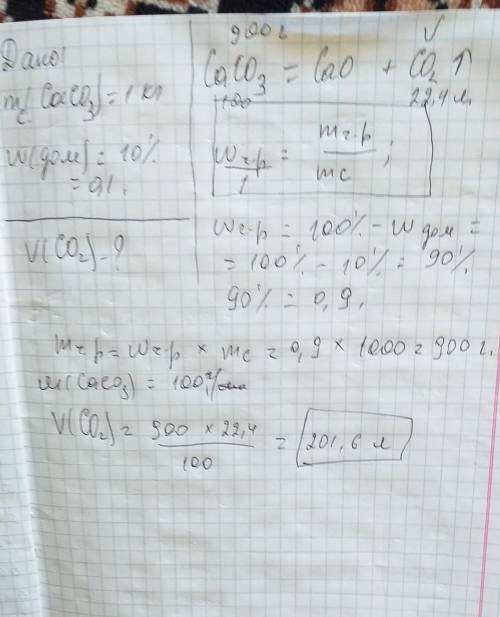 Дано!
m(CaCO3) = 1 кг
с
w(дом) = 10%
= 0,1.
V(CO2) - ?
900 г V
CaCO3 = CaO + CO2 ↑
100 22,4 л.
wч.р / 1 = mч.р / mс ;
wч-р = 100% - wдом =
= 100% - 10% = 90%
90% = 0,9.
mч.р = wч.р × mс = 0,9 × 1000 = 900 г.
м(CaCO3) = 100 г/моль
V(CO2) = 900 × 22,4 / 100 = 201,6 л